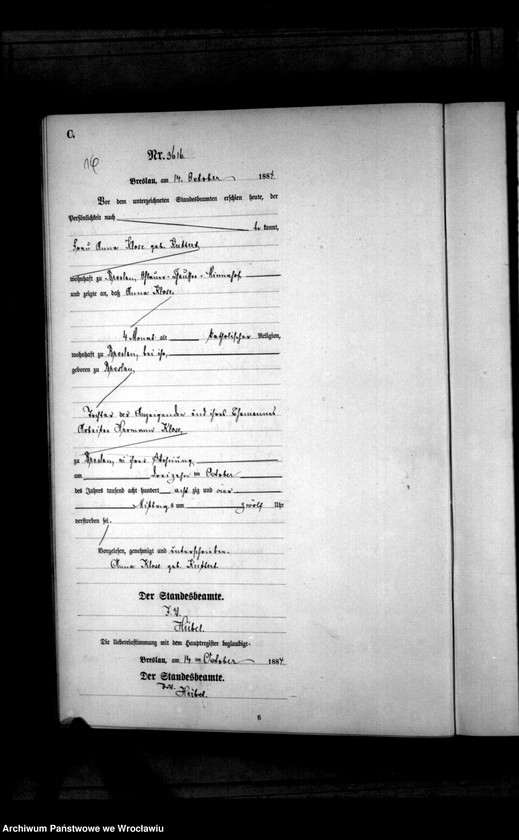 C.
Nr. 3616
Breslau, am 14. October 1884
Vor dem unterzeichneten Standesbeamten erschien heute, der
Persönlichkeit nach
be kannt,
Frau Anna Klose geb.
wohnhaft zu Breslau, Ohlauer-Chaussee
und zeigte an, daß Anna Klose,
4 Monat alt katholischer Religion,
wohnhaft zu Breslau, bei ihr,
geboren zu Breslau,
Tochter der Anzeigenden und ihres Ehemannes
Arbeiter Hermann Klose,
zu Breslau, in ihrer Wohnung,
am dreizehn ten October
des Jahres tausend acht hundert acht zig und vier
Mittags um zwölf Uhr
verstorben sei.
Vorgelesen, genehmigt und unterschrieben.
Anna Klose geb.
Der Standesbeamte.
J. V.
Heibel.
Die Uebereinstimmung mit dem Hauptregister beglaubigt.
Breslau, am 14 ten October 1884
Der Standesbeamte.
J. V.
Heibel.
6
Archiwum Państwowe we Wrocławiu